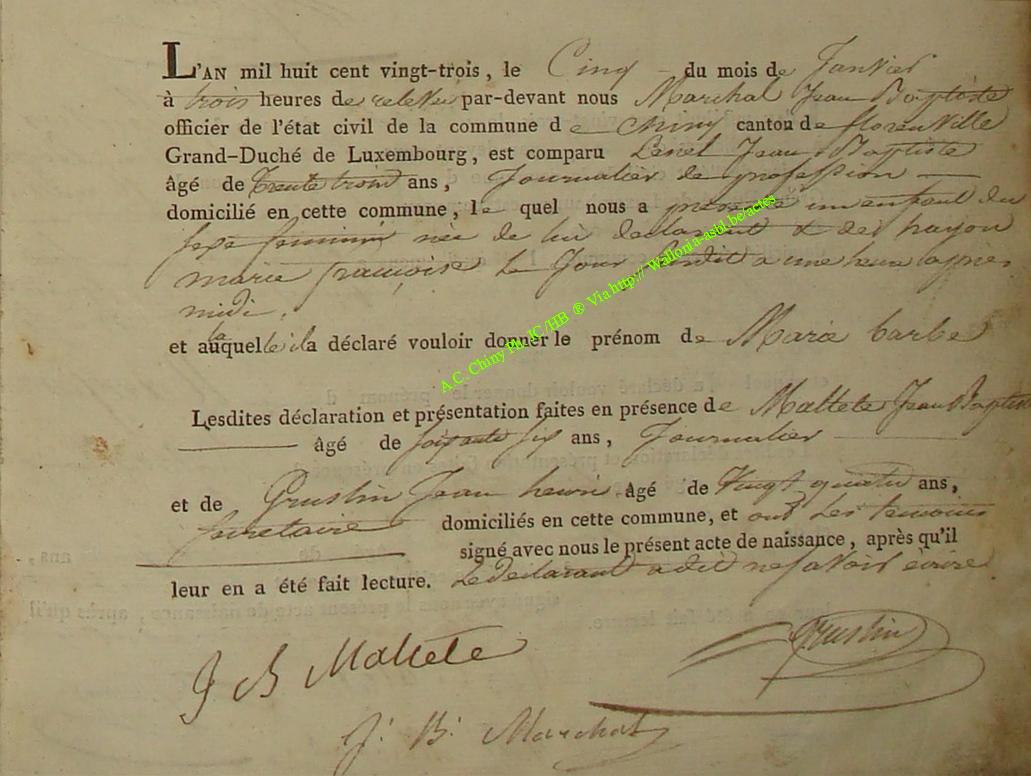 L'AN mil huit cent vingt-trois, le Cinq du mois de Janvier
à trois heures de relevée par-devant nous Marchal Jean Baptiste
officier de l'état civil de la commune de chiny canton de florenville
Grand-Duché de Luxembourg, est comparu Lenel Jean Baptiste
âgé de trente trois ans, Journalier de profession
domicilié en cette commune, le quel nous a présenté un enfant du
sexe feminin née de lui declarant & de hayon
marie françoise le Jour susdit a une heure apres
midi.
et auquel la le il a déclaré vouloir donner le prénom de Marie barbe
Lesdites déclaration et présentation faites en présence de Maltete Jean Baptiste
âgé de soixante six ans, Journalier
et de Grustin Jean henri âgé de Vingt quatre ans,
secretaire domiciliés en cette commune, et ont Les temoins
signé avec nous le présent acte de naissance, après qu'il
leur en a été fait lecture. Le declarant a dit ne savoir écrire
Grustin
J B Maltete
J. B. Marchal
A.C. Chiny Ph. JC/HB ® Via http://Wallonia-asbl.be/actes